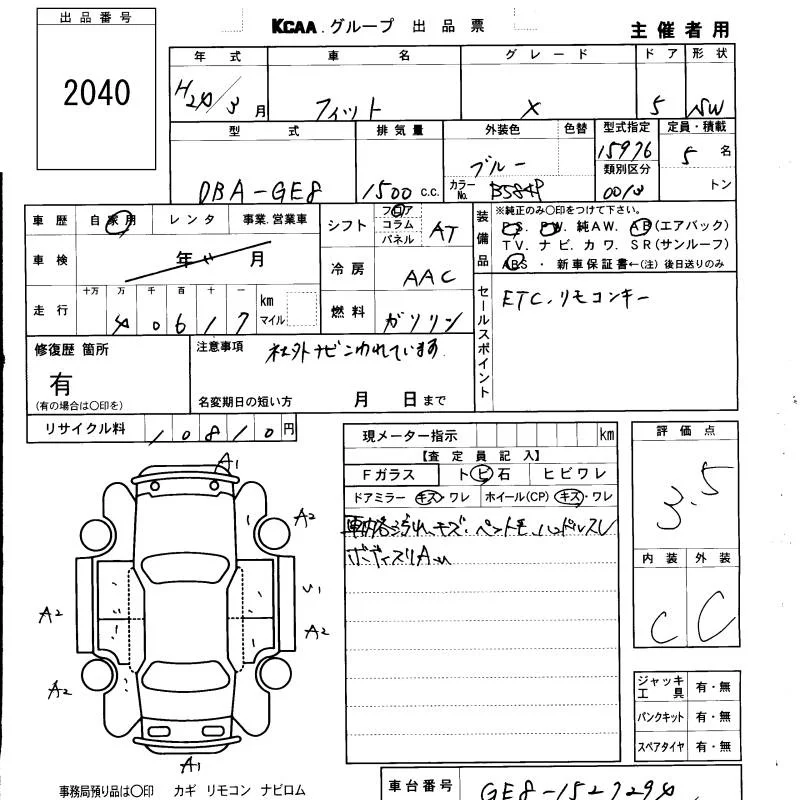 出品番号
2040
KCAA.グループ 出品票
主催者用
年式 車名 グレード ドア 形状
H24/3月 フィット X 5 SW
型式 排気量 外装色 色替 型式指定 定員・積載
DBA-GE8 1500 c.c. ブルー 15976 5名
カラーNo. B584P 類別区分 0013 トン
車歴 自家用 レンタ 事業.営業車
シフト フロア コラム パネル AT
装備品 ※純正のみ〇印をつけて下さい。
PS. PW. 純AW. AB(エアバック)
TV. ナビ. カワ. SR(サンルーフ)
ABS ・ 新車保証書←(注)後日送りのみ
車検 年 月
冷房 AAC
走行 十万 万 千 百 十 一 km マイル
40617
燃料 ガソリン
セールスポイント ETC.リモコンキー
修復歴 箇所
有
(有の場合は〇印を)
注意事項 社外ナビこわれています
名変期日の短い方 月 日まで
リサイクル料 10810円
現メーター指示 km
【査定員記入】
Fガラス トビ石 ヒビワレ
ドアミラー キズ・ワレ ホイール(CP) キズ・ワレ
車内 キズ.
評価点
3.5
内装 外装
C C
A1
A2 A2
A2 U1
A2
A2
A1
ジャッキ工具 有・無
パンクキット 有・無
スペアタイヤ 有・無
事務局預り品は〇印 カギ リモコン ナビロム
車台番号 GE8-1527294